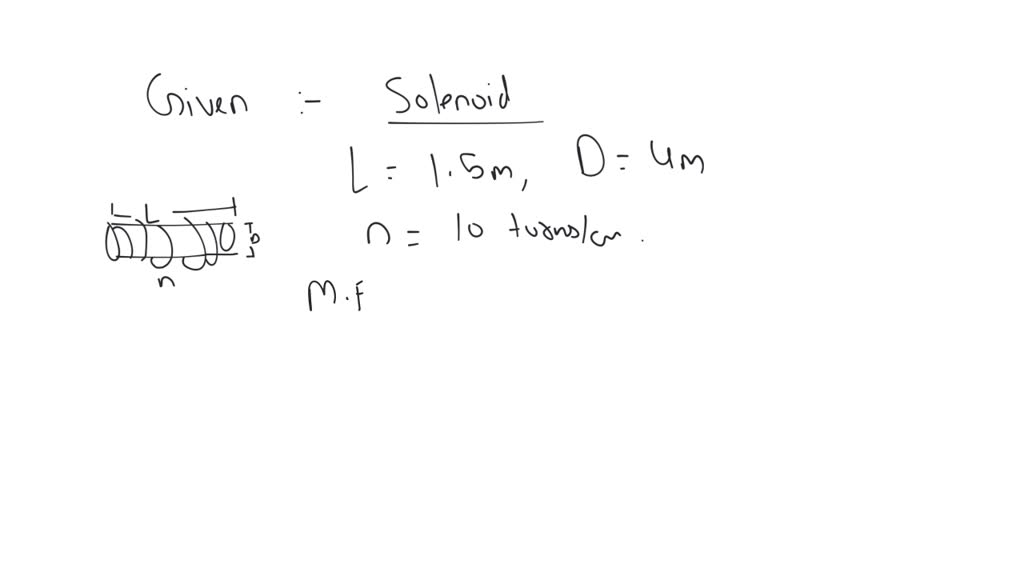 Given :- Solenoid
L = 1.5m, D = 4m
L
D
n = 10 turns/cm.
n
M.F